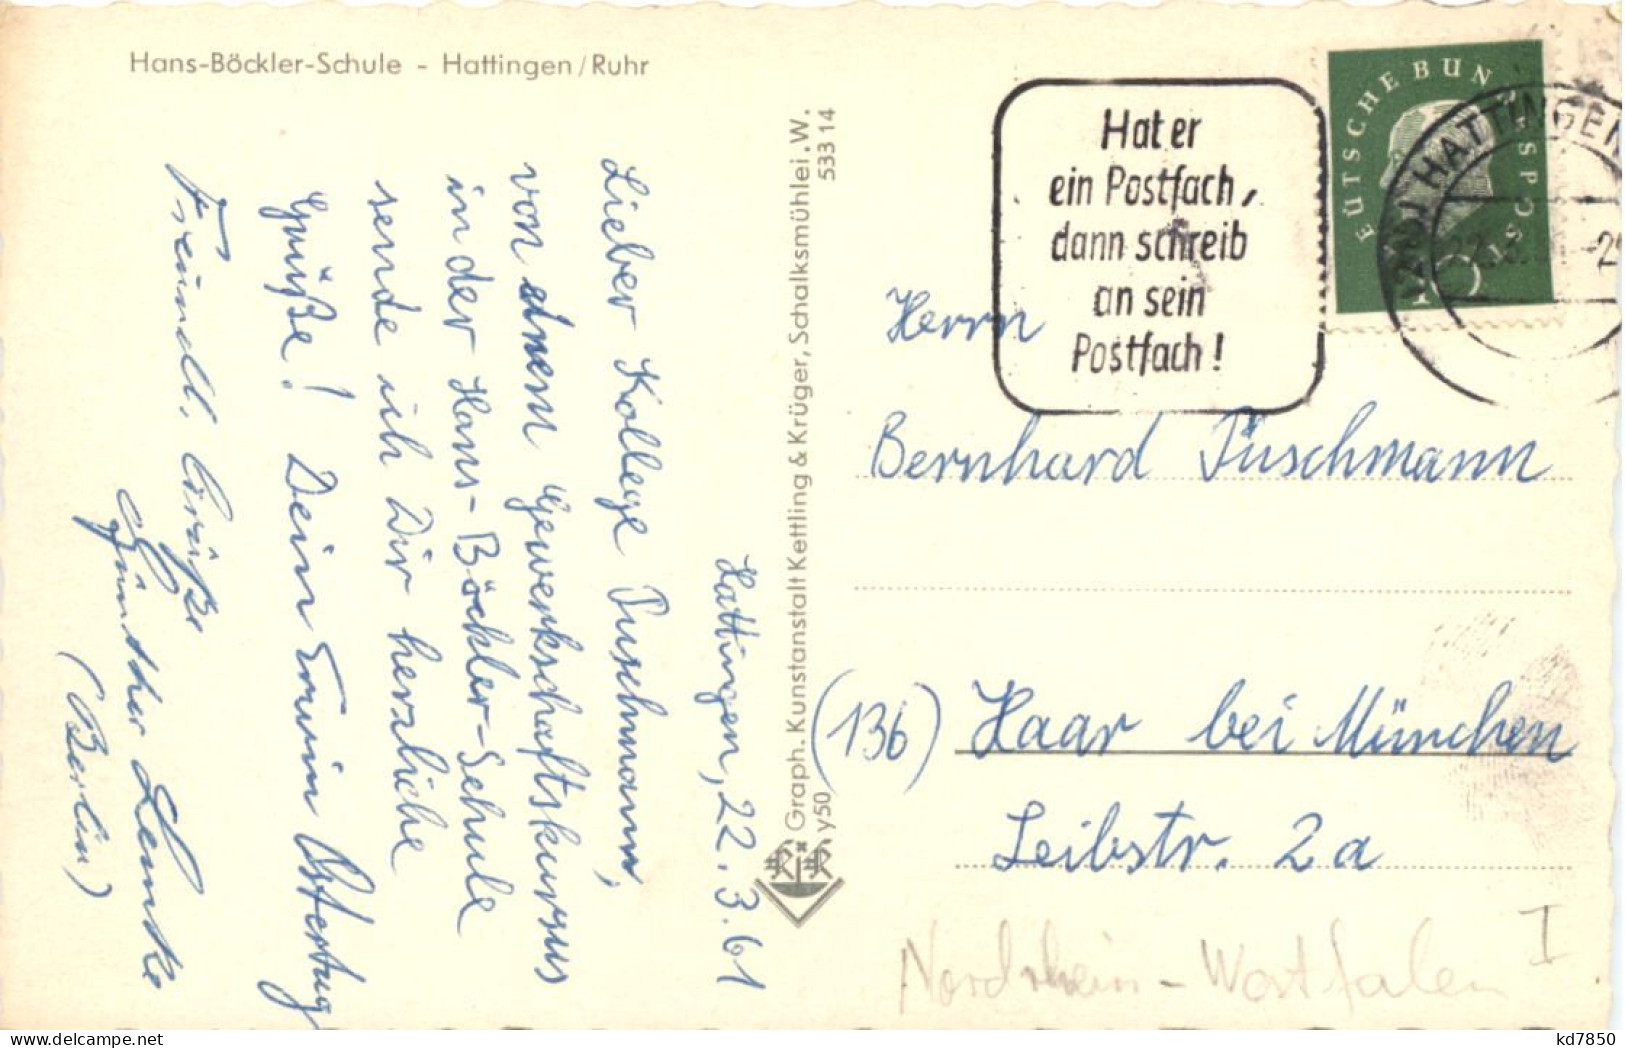 Hans-Böckler-Schule - Hattingen/Ruhr
Hattingen, 22.3.61
Lieber Kollege Puschmann,
von einem Gewerkschaftskursus
in der Hans-Böckler-Schule
sende ich Dir herzliche
Grüße! Dein Erwin
Freundl. Grüße
Günther Lemke
(Berlin)
Graph. Kunstanstalt Kettling & Krüger, Schalksmühle i.W.
y50
533 14
Hat er
ein Postfach,
dann schreib
an sein
Postfach!
DEUTSCHE BUNDESPOST
10
HATTINGEN
Herrn
Bernhard Puschmann
(13b) Haar bei München
Leibstr. 2a
Nordrhein-Westfalen
I
kd7850